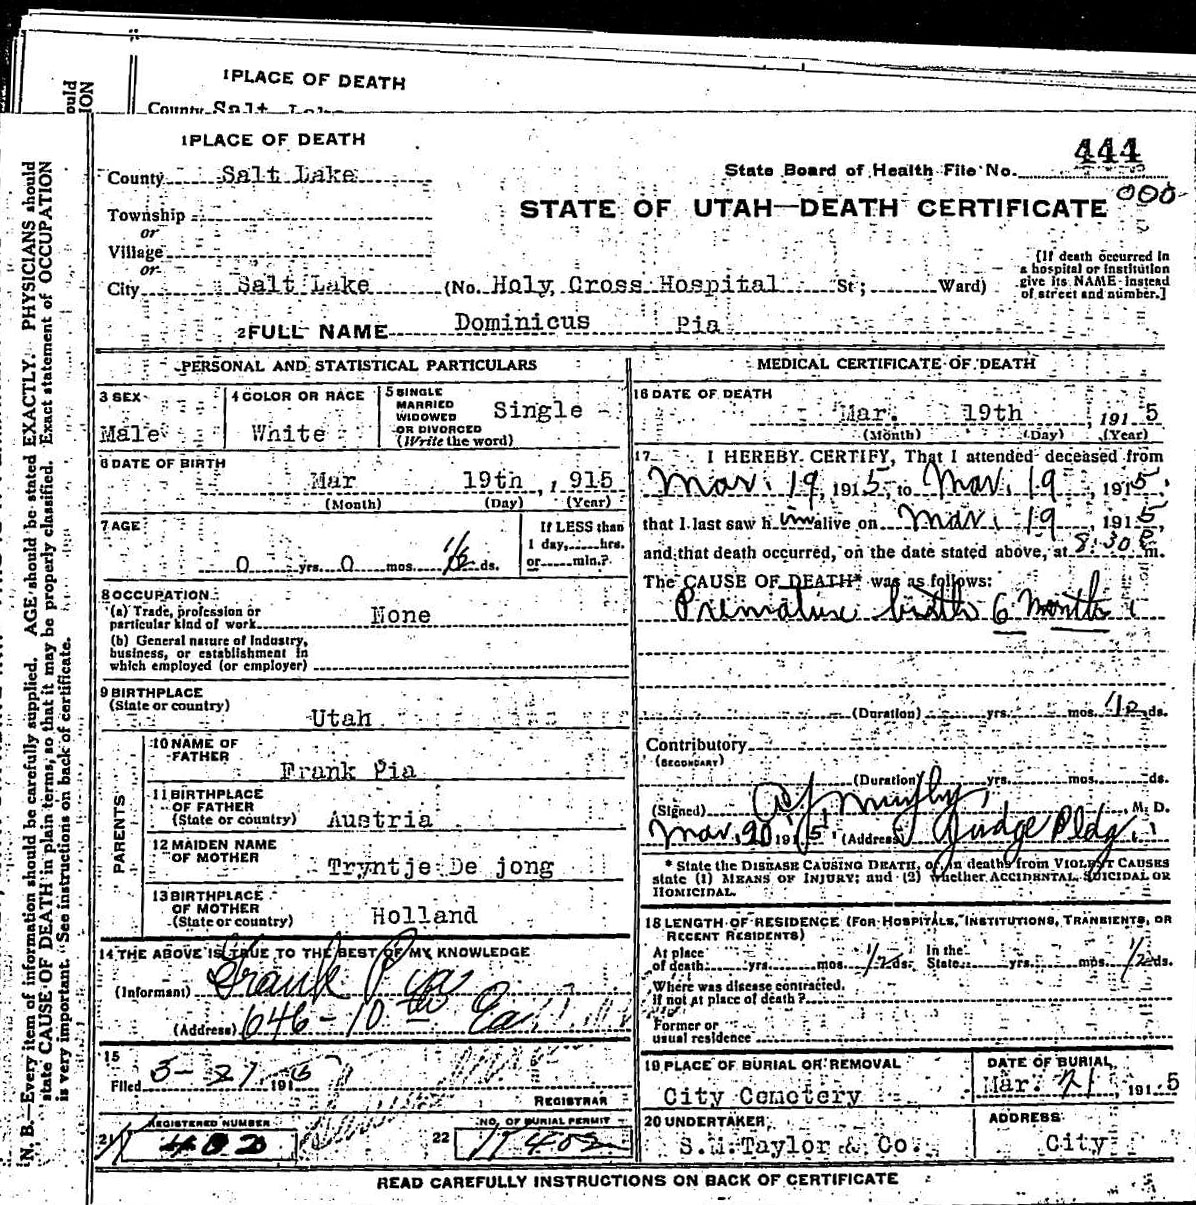 1 PLACE OF DEATH
County Salt Lake
1 PLACE OF DEATH
County Salt Lake
State Board of Health File No. 444
000
Township
or
Village
or
City Salt Lake (No. Holy Cross Hospital St; Ward)
STATE OF UTAH—DEATH CERTIFICATE
[If death occurred in
a hospital or institution
give its NAME instead
of street and number.]
2 FULL NAME Dominicus Pia
PERSONAL AND STATISTICAL PARTICULARS
3 SEX
Male
4 COLOR OR RACE
White
5 SINGLE
MARRIED
WIDOWED
OR DIVORCED
(Write the word)
Single
6 DATE OF BIRTH
Mar 19th, 1915
(Month) (Day) (Year)
7 AGE
0 yrs. 0 mos. 1/2 ds.
If LESS than
1 day, hrs.
or min.?
8 OCCUPATION
(a) Trade, profession or
particular kind of work None
(b) General nature of Industry,
business, or establishment in
which employed (or employer)
9 BIRTHPLACE
(State or country)
Utah
PARENTS
10 NAME OF
FATHER
Frank Pia
11 BIRTHPLACE
OF FATHER
(State or country) Austria
12 MAIDEN NAME
OF MOTHER
Tryntje De jong
13 BIRTHPLACE
OF MOTHER
(State or country) Holland
14 THE ABOVE IS TRUE TO THE BEST OF MY KNOWLEDGE
(Informant) Frank Pia
(Address) 646-10th Ea
15
Filed 3- 191
REGISTRAR
REGISTERED NUMBER
21
402
NO. OF BURIAL PERMIT
22
402
MEDICAL CERTIFICATE OF DEATH
16 DATE OF DEATH
Mar. 19th, 1915
(Month) (Day) (Year)
17 I HEREBY CERTIFY, That I attended deceased from
Mar. 19, 1915, to Mar. 19, 1915,
that I last saw him alive on Mar. 19, 1915,
and that death occurred, on the date stated above, at 8:30 P m.
The CAUSE OF DEATH* was as follows:
Premature birth 6 months
(Duration) yrs. mos. 1/2 ds.
Contributory
(SECONDARY)
(Duration) yrs. mos. ds.
(Signed) M. D.
Mar. 20 1915 (Address) Judge Bldg.
* State the DISEASE CAUSING DEATH, or, in deaths from VIOLENT CAUSES
state (1) MEANS OF INJURY; and (2) whether ACCIDENTAL, SUICIDAL OR
HOMICIDAL.
18 LENGTH OF RESIDENCE (FOR HOSPITALS, INSTITUTIONS, TRANSIENTS, OR
RECENT RESIDENTS)
At place
of death yrs. mos. 1/2 ds.
In the
State yrs. mos. 1/2 ds.
Where was disease contracted,
If not at place of death?
Former or
usual residence
19 PLACE OF BURIAL OR REMOVAL
City Cemetery
DATE OF BURIAL
Mar. 21, 1915
20 UNDERTAKER
S.M.Taylor & Co.
ADDRESS
City
READ CAREFULLY INSTRUCTIONS ON BACK OF CERTIFICATE
N. B.—Every item of information should be carefully supplied. AGE should be stated EXACTLY. PHYSICIANS should
state CAUSE OF DEATH in plain terms, so that it may be properly classified. Exact statement of OCCUPATION
is very important. See instructions on back of certificate.